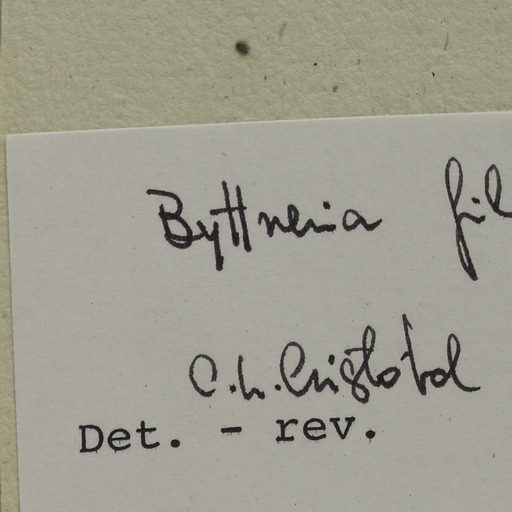 Byttneria fil
C.L. Cristóbal
Det. - rev.